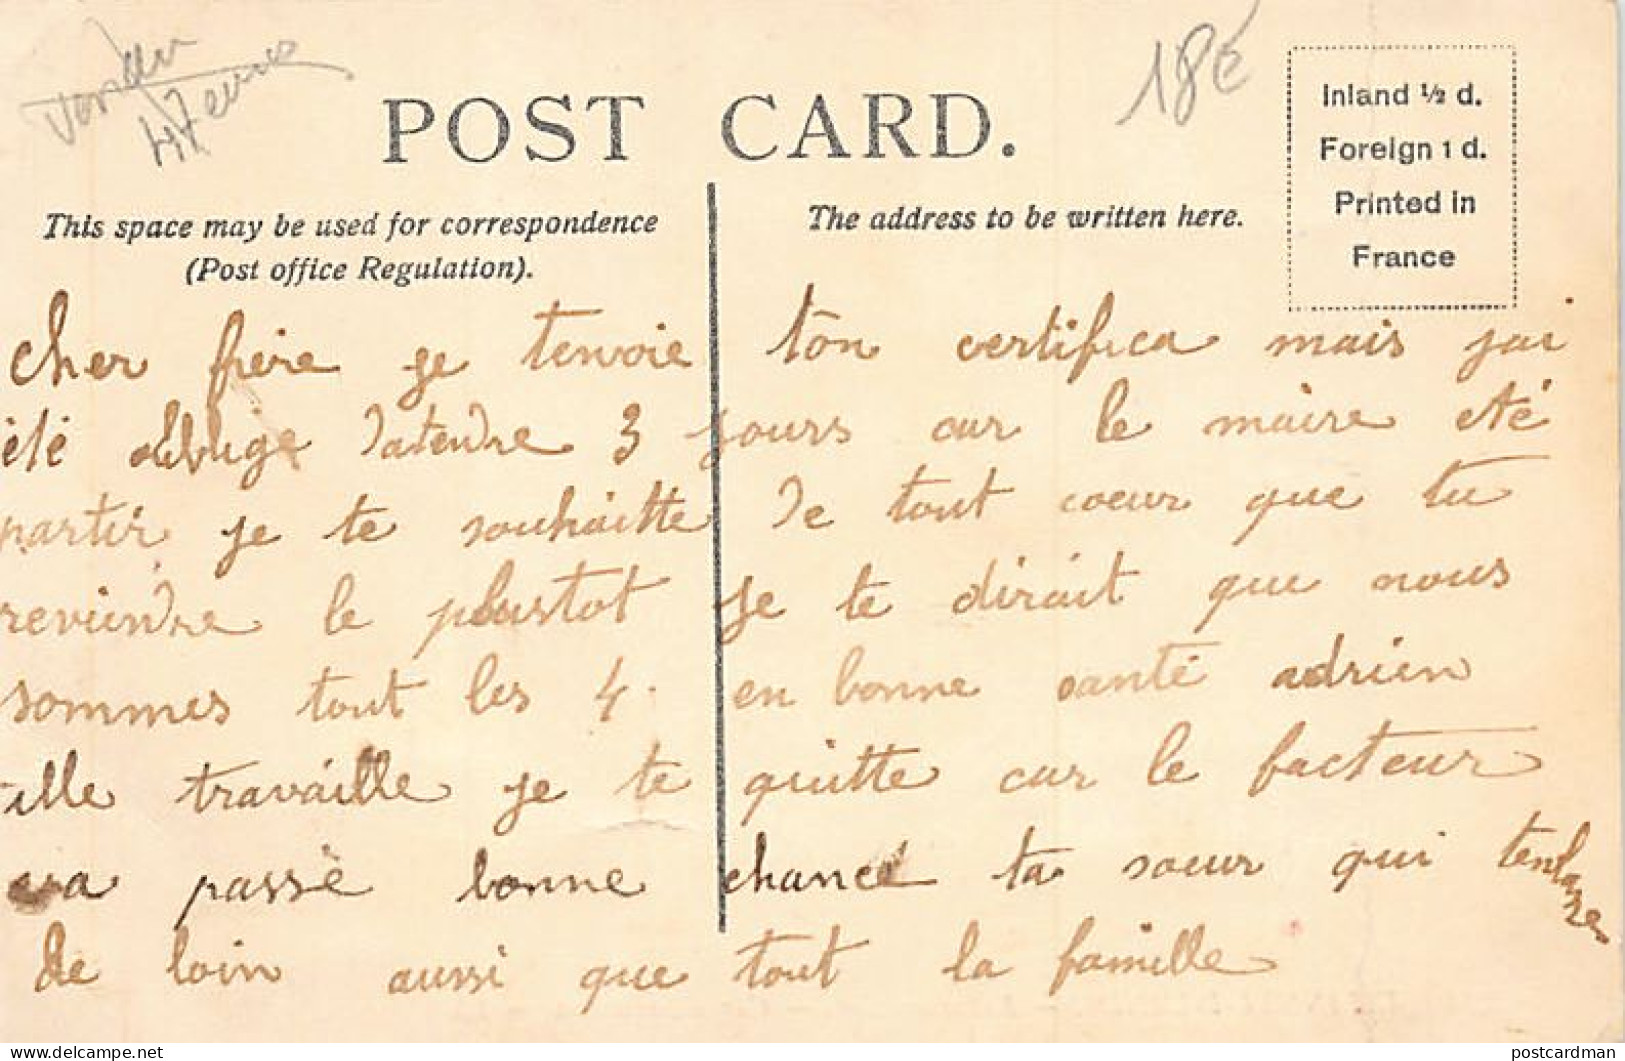 18€
POST CARD.
Inland ½ d.
Foreign 1 d.
Printed in
France
This space may be used for correspondence
(Post office Regulation).
The address to be written here.
cher frère je tenvoie ton certifica mais jai
été obblige datendre 3 jours car le maire eté
partir je te souhaitte de tout coeur que tu
reviendre le plustot je te dirait que nous
sommes tout les 4 en bonne santé adrien
ille travaille je te quitte car le facteur
va passè bonne chance ta soeur qui tenbrasse
de loin aussi que tout la famille
https://www.delcampe.net
postcardman